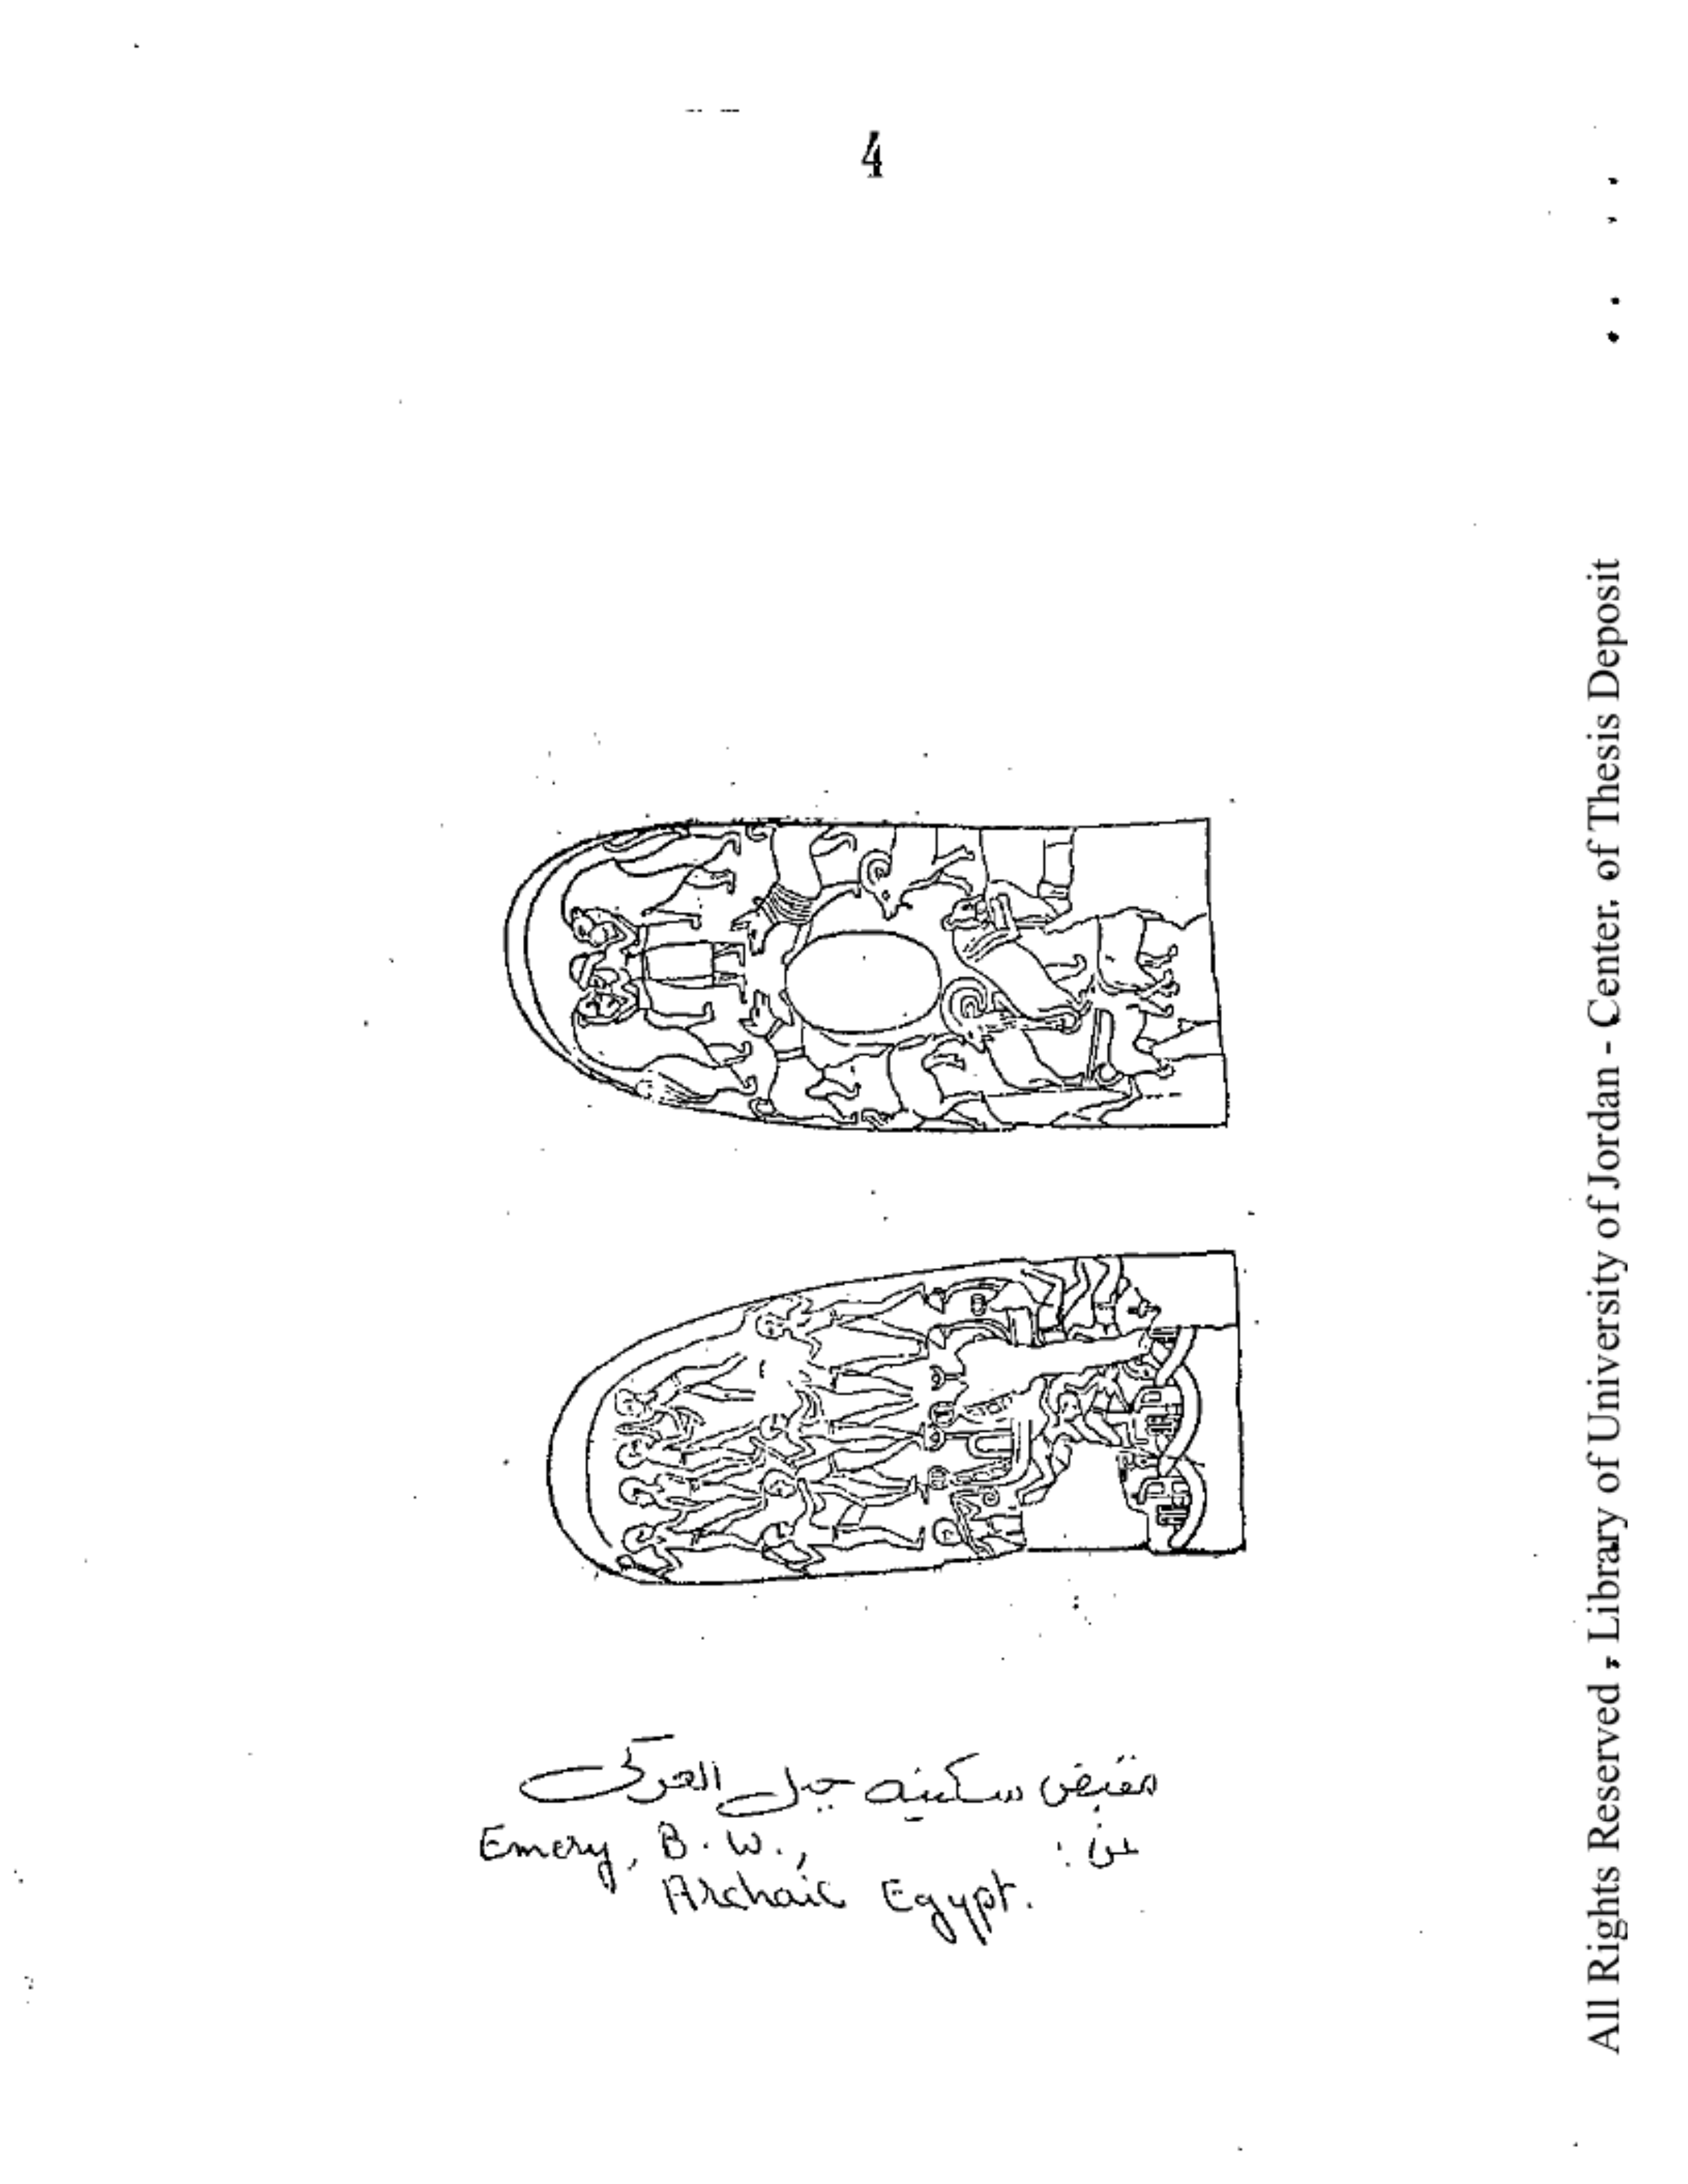 4
مقبض سكينه جبل العركى
عن :
Emery, B. W.,
Archaic Egypt.
All Rights Reserved - Library of University of Jordan - Center of Thesis Deposit